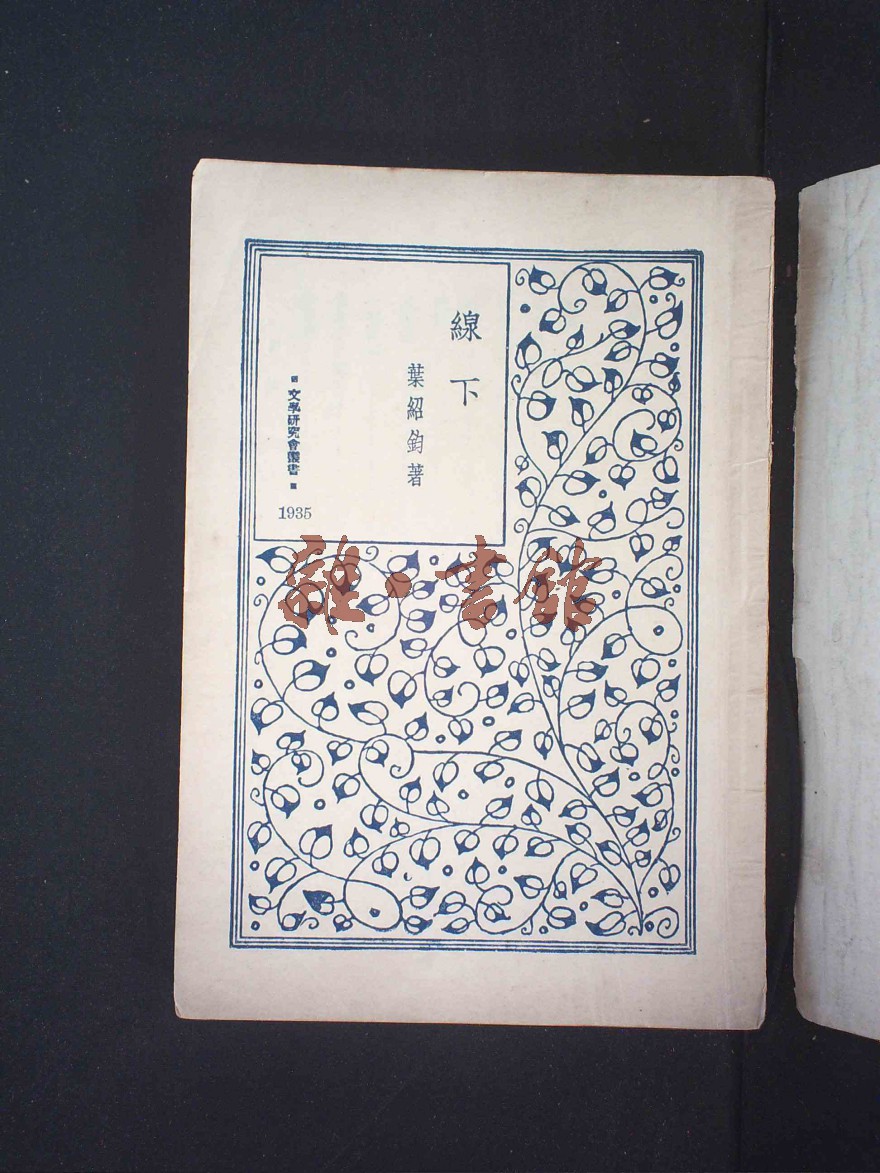 線下
葉紹鈞著
文學研究會叢書
1935
雜·書館